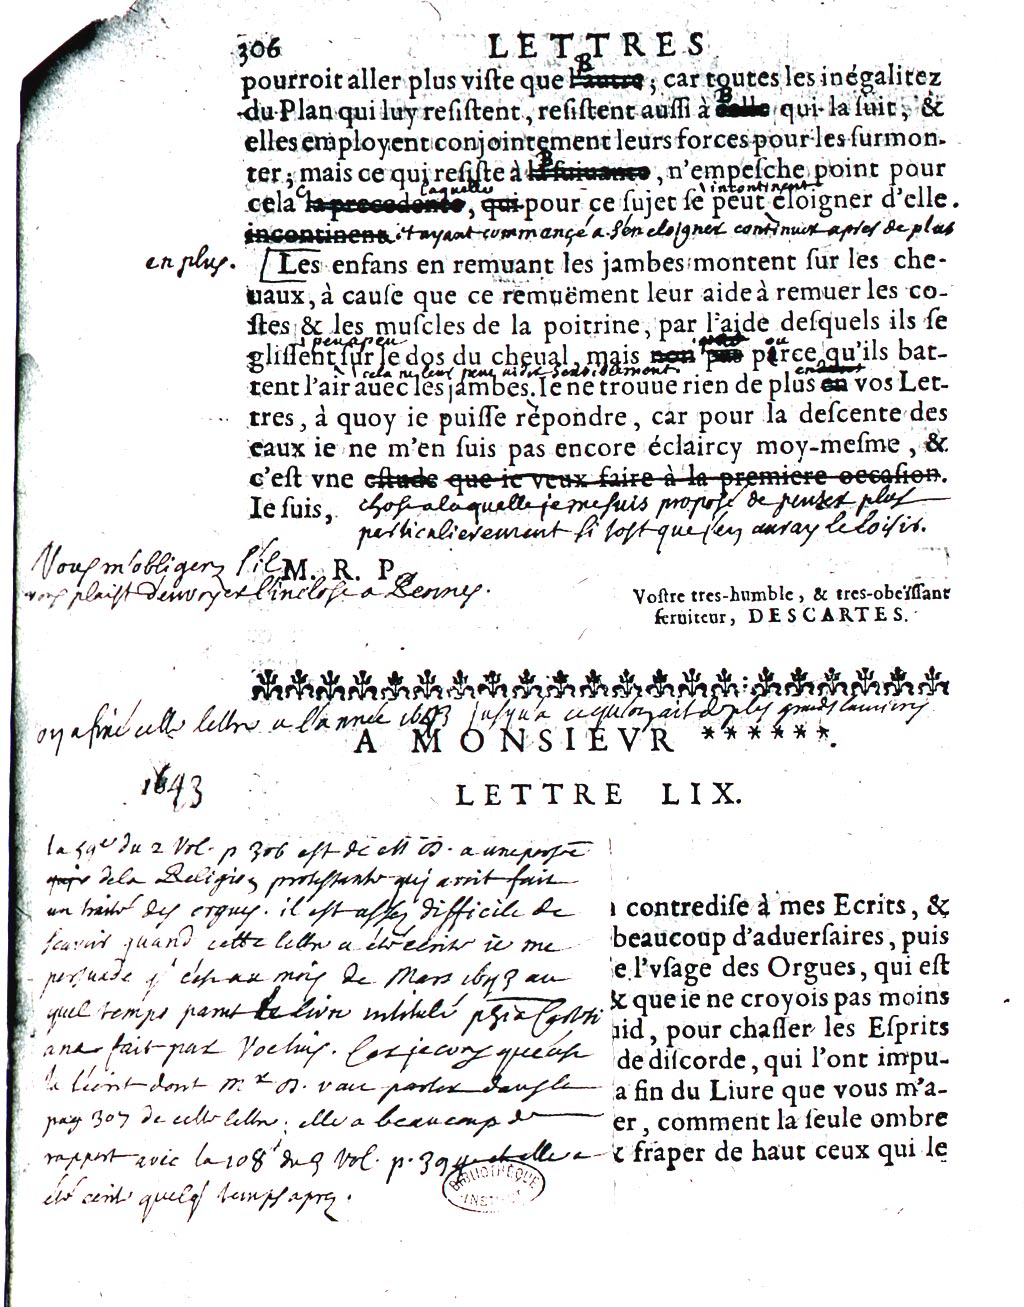 306 LETTRES
pourroit aller plus viſte que l'autre B ; car toutes les inégalitez
du Plan qui luy reſiſtent, reſiſtent auſſi à celle B qui la ſuit, &
elles employent conjointement leurs forces pour les ſurmon-
ter ; mais ce qui reſiſte à la ſuiuante B, n'empeſche point pour
laquelle incontinent
cela C la precedente, qui pour ce ſujet ſe peut éloigner d'elle.
incontinent et ayant commancé a s'en eloigner continuer apres de plus
en plus. Les enfans en remuant les jambes montent ſur les che-
uaux, à cauſe que ce remuëment leur aide à remuer les co-
ſtes & les muſcles de la poitrine, par l'aide deſquels ils ſe
peu a peu ou
gliſſent ſur le dos du cheual, mais non pas parce qu'ils bat-
cela ne leur peut aider sensiblement
tent l'air auec les jambes. Ie ne trouue rien de plus en vos Let-
tres, à quoy ie puiſſe répondre, car pour la deſcente des
eaux ie ne m'en ſuis pas encore éclaircy moy-meſme, &
c'eſt vne eſtude que ie veux faire à la premiere occaſion.
Ie ſuis, chose a laquelle je me suis proposé de penser plus
particulierement si tost que j'en auray le loisir.
Vous m'obligerez s'il
M. R. P.
vous plaist d'envoyer l'incluse a Rennes.
Voſtre tres-humble, & tres-obeïſſant
ſeruiteur, DESCARTES.
on a fixé cette lettre a l'année 1643 jusqu'a ce qu'on ait de plus grandes lumieres
A MONSIEVR ******.
1643
LETTRE LIX.
la 59e du 2 Vol. p 306 est de Mr D. a une
de la Religion protestante qui avoit fait
un traité des orgues. il est assés difficile de
scavoir quand cette lettre a été ecrite ie me
persuade q' c'est au mois de Mars 1643 au
quel temps parut le livre intitulé
fait par Voetius. Car je croy que c'est
le livre dont Mr D. veut parler dans la
pag 307 de cette lettre ; elle a beaucoup de
rapport avec la 108 du 3 Vol. p. elle a
été ecrite quelq' temps aprez.
contrediſe à mes Ecrits, &
beaucoup d'aduerſaires, puis
e l'vſage des Orgues, qui eſt
& que ie ne croyois pas moins
uid, pour chaſſer les Eſprits
de diſcorde, qui l'ont impu-
a fin du Liure que vous m'a-
er, comment la ſeule ombre
fraper de haut ceux qui le
BIBLIOTHEQUE